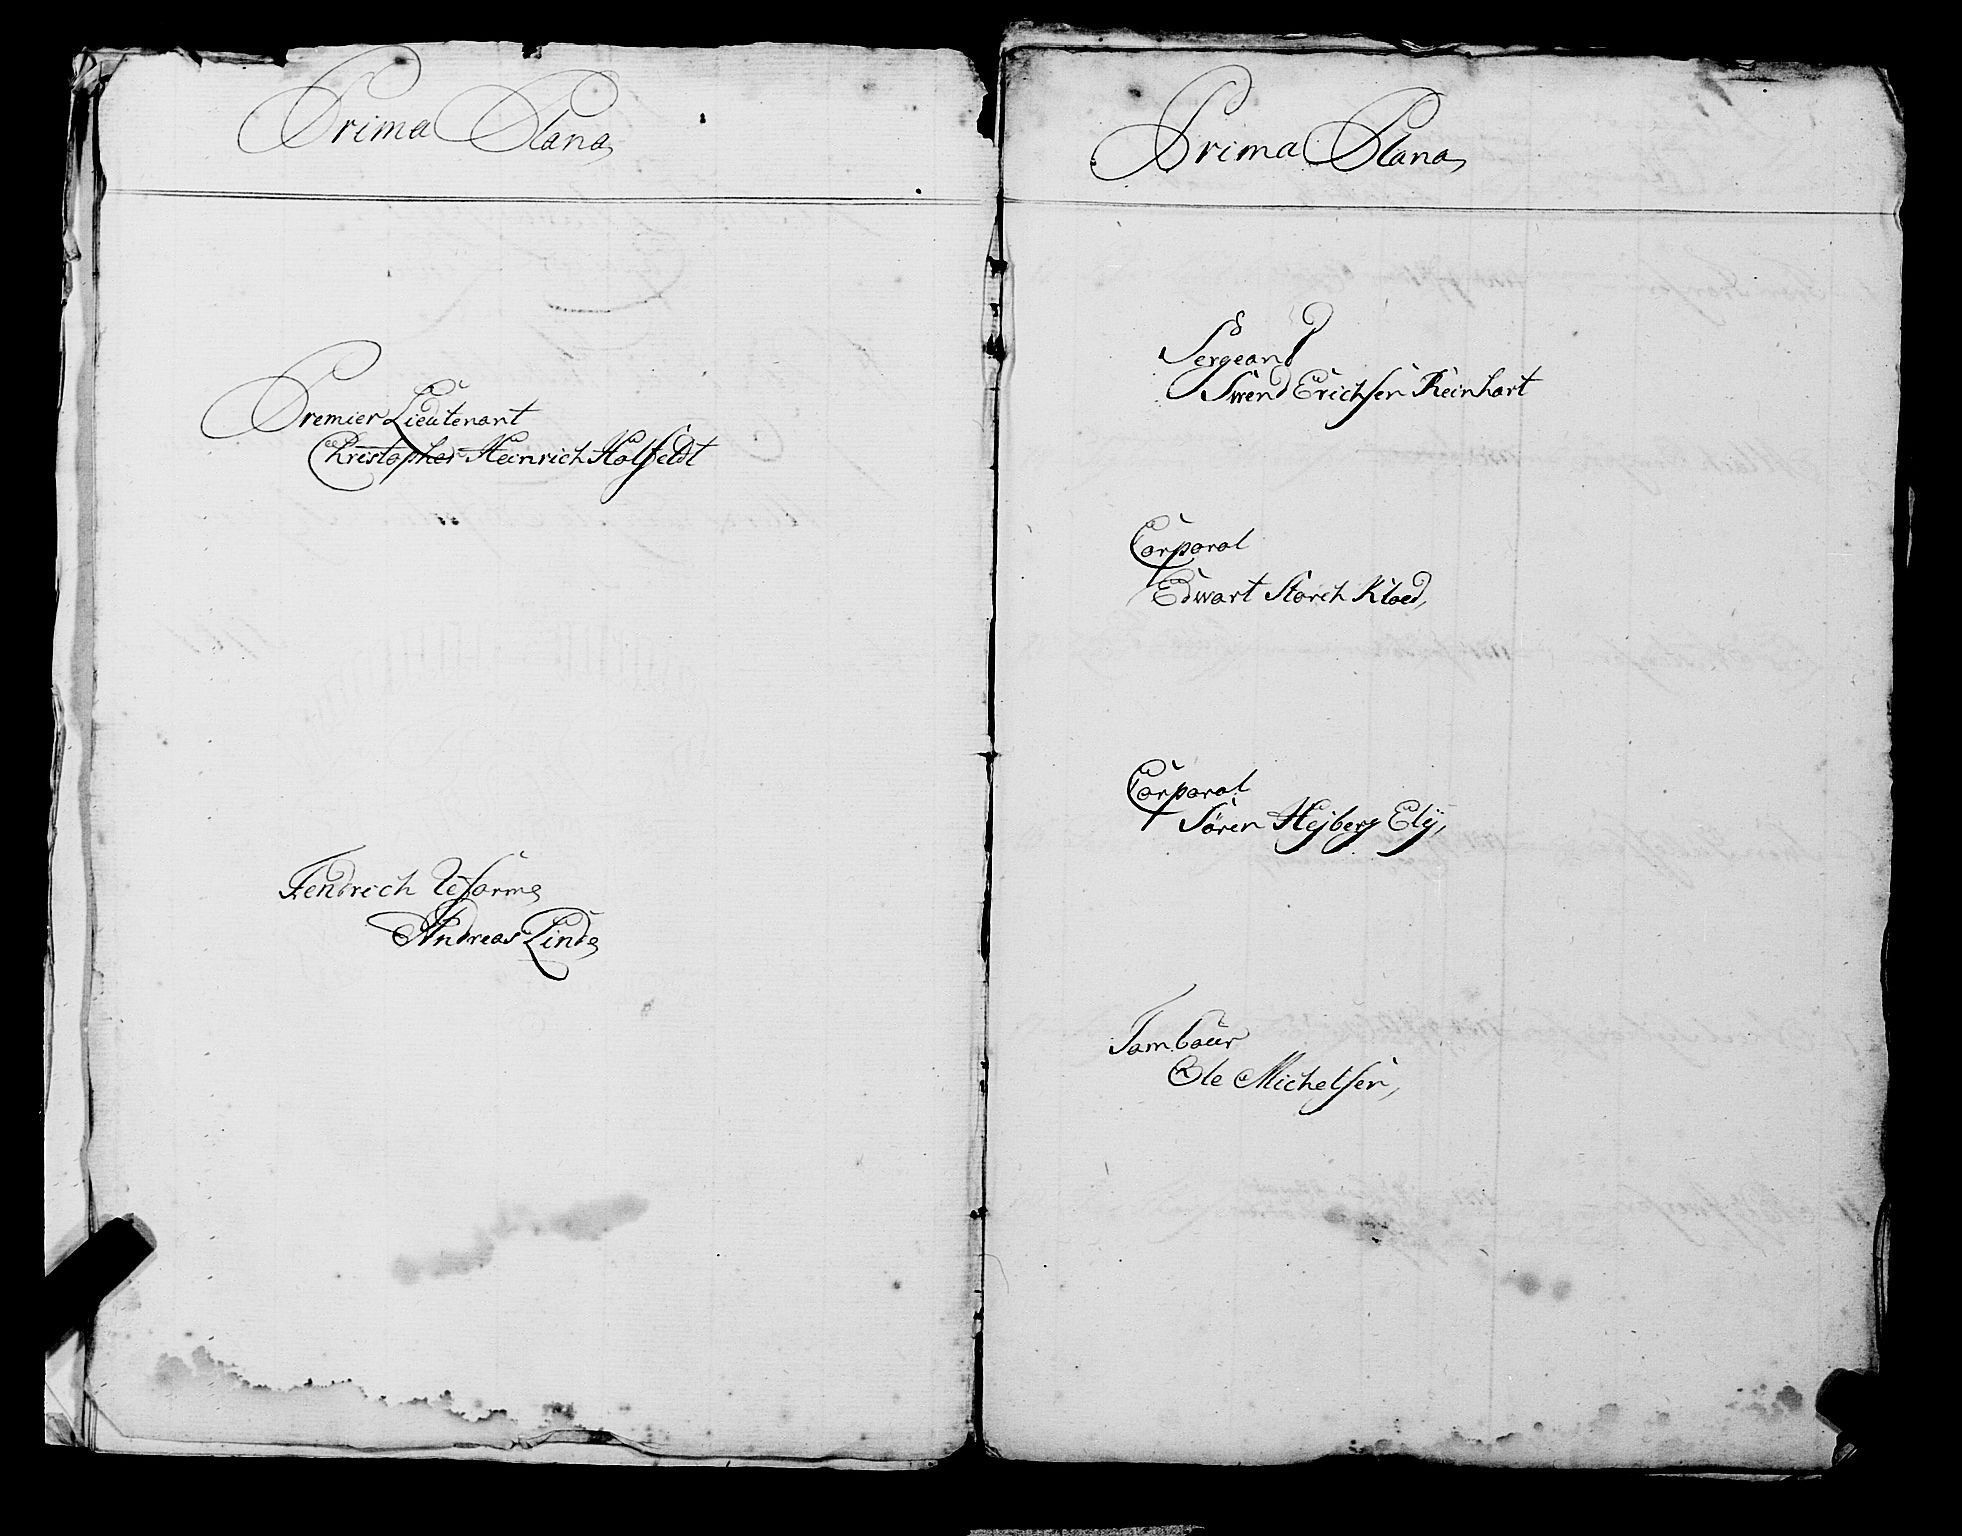 Prima Plana
Premier Lieutenant
Christopher Heinrich Holfeldt
Fendrich Reforme
Andreas Linde
Prima Plana
Sergeand
Swend Erichsen Reinhart
Corporal
Edwart Storch Kloed,
Corporal
Søren Hejberg Elij,
Tambour
Ole Michelsen,